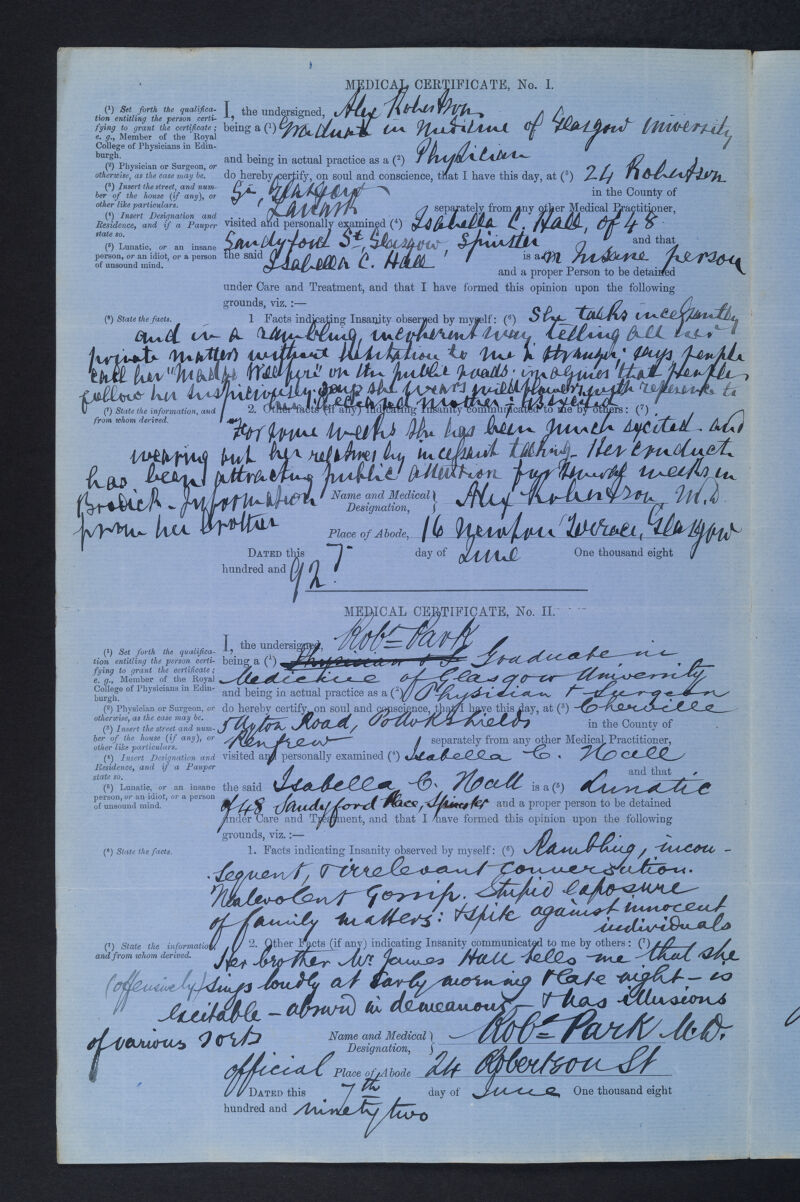 MEDICAL CERTIFICATE, No. I.
(1) Set forth the qualifica-
tion entitling the person certi-
fying to grant the certificate;
e. g., Member of the Royal
College of Physicians in Edin-
burgh.
(2) Physician or Surgeon, or
otherwise, as the case may be.
(3) Insert the street, and num-
ber of the house (if any), or
other like particulars.
(4) Insert Designation and
Residence, and if a Pauper
state so.
(5) Lunatic, or an insane
person, or an idiot, or a person
of unsound mind.
I, the undersigned, Alex Robertson
being a (1) Graduate in Medicine of Glasgow University
and being in actual practice as a (2) Physician
do hereby certify, on soul and conscience, that I have this day, at (3) 24 Robertson
St, Glasgow in the County of
Lanark separately from any other Medical Practitioner,
visited and personally examined (4) Isabella C. Hall, of 48
Sandyford St, Glasgow, Spinster and that
the said Isabella C. Hall is a n Insane person
and a proper Person to be detained
under Care and Treatment, and that I have formed this opinion upon the following
grounds, viz. :—
(6) State the facts.
1 Facts indicating Insanity observed by myself: (6) She talks incessantly
and in a rambling, incoherent way, telling all her
private matters without hesitation to me a stranger: says people
call her "Madge Wildfire" on the public roads: imagines that people
follow her suspiciously: says she wears wild flowers with reference to
her deceased mother: is excited
(7) State the information, and
from whom derived.
2. Other facts (if any) indicating Insanity communicated to me by others: (7)
For some weeks she has been much excited and
wearing out her relatives by incessant talking. Her conduct
has been attracting public attention for several weeks in
Brodick. Information
from her brother
Name and Medical
Designation, Alex Robertson M.D.
Place of Abode, 16 Newton Terrace, Glasgow
DATED this 7 day of June One thousand eight
hundred and 92.
MEDICAL CERTIFICATE, No. II.
(1) Set forth the qualifica-
tion entitling the person certi-
fying to grant the certificate;
e. g., Member of the Royal
College of Physicians in Edin-
burgh.
(2) Physician or Surgeon, or
otherwise, as the case may be.
(3) Insert the street and num-
ber of the house (if any), or
other like particulars.
(4) Insert Designation and
Residence, and if a Pauper
state so.
(5) Lunatic, or an insane
person, or an idiot, or a person
of unsound mind.
I, the undersigned, Robt Park
being a (1) Graduate in
Medicine of Glasgow University
and being in actual practice as a (2) Physician & Surgeon
do hereby certify, on soul and conscience, that I have this day, at (3)
5 Road, Pollokshields in the County of
Renfrew separately from any other Medical Practitioner,
visited and personally examined (4) Isabella C. Hall
and that
the said Isabella C. Hall is a (5) Lunatic
of 48 Sandyford Place, Spinster and a proper person to be detained
under Care and Treatment, and that I have formed this opinion upon the following
grounds, viz. :—
(6) State the facts.
1. Facts indicating Insanity observed by myself: (6) Rambling, incon-
sequent, & irrelevant conversation.
Malevolent Gossip. Stupid exposure
of family matters: & spite against innocent
individuals
(7) State the information
and from whom derived.
2. Other Facts (if any) indicating Insanity communicated to me by others: (7)
Her brother Mr James Hall tells me that she
(offensively) sings loudly at early morning & late night – is
excitable – absurd in demeanour – & has illusions
of various sorts
Name and Medical
Designation, Robt Park M.D.
official Place of Abode 24 Robertson St
DATED this 7th day of June One thousand eight
hundred and ninety two